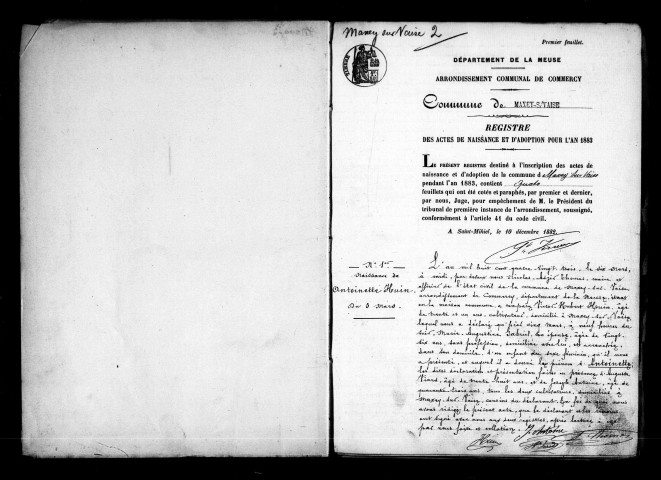 Maxey sur Vaise 2
Premier feuillet.
DÉPARTEMENT DE LA MEUSE
ARRONDISSEMENT COMMUNAL DE COMMERCY
Commune de MAXEY-S/VAISE
REGISTRE
DES ACTES DE NAISSANCE ET D'ADOPTION POUR L'AN 1883
LE PRÉSENT REGISTRE destiné à l'inscription des actes de
naissance et d'adoption de la commune d Maxey sur Vaise
pendant l'an 1883, contient quatre
feuillets qui ont été cotés et paraphés, par premier et dernier,
par nous, Juge, pour empêchement de M. le Président du
tribunal de première instance de l'arrondissement, soussigné,
conformément à l'article 41 du code civil.
A Saint-Mihiel, le 10 décembre 1882.
N° 1er
Naissance de
Antoinette Huin
Du 5 mars.
L'an mil huit cent quatre vingt trois, le six mars,
à midi, par devant nous Nicolas, maire et
officier de l'état civil de la commune de Maxey-sur-Vaise,
arrondissement de Commercy, département de la Meuse,
en la maison commune, a comparu Victor Huin, âgé
de trente et un ans, cultivateur, domicilié à Maxey-sur-Vaise,
lequel nous a déclaré que hier cinq mars, à neuf heures du
soir, Marie Augustine Gabriel, son épouse, âgée de vingt
six ans, sans profession, domiciliée avec lui, est accouchée,
dans son domicile, d'un enfant du sexe féminin, qu'il nous
a présenté, et auquel il a donné les prénoms d'Antoinette
les dites déclaration et présentation faites en présence d'Auguste
âgé de trente huit ans, et de Joseph Antoine, âgé de
quarante trois ans, tous les deux cultivateurs, domiciliés à
Maxey-sur-Vaise, cousins du déclarant. En foi de quoi nous
avons rédigé le présent acte, que le déclarant et les témoins
ont signé avec nous aux deux registres, après lecture à eux
par nous faite et collation.
Huin J. Antoine